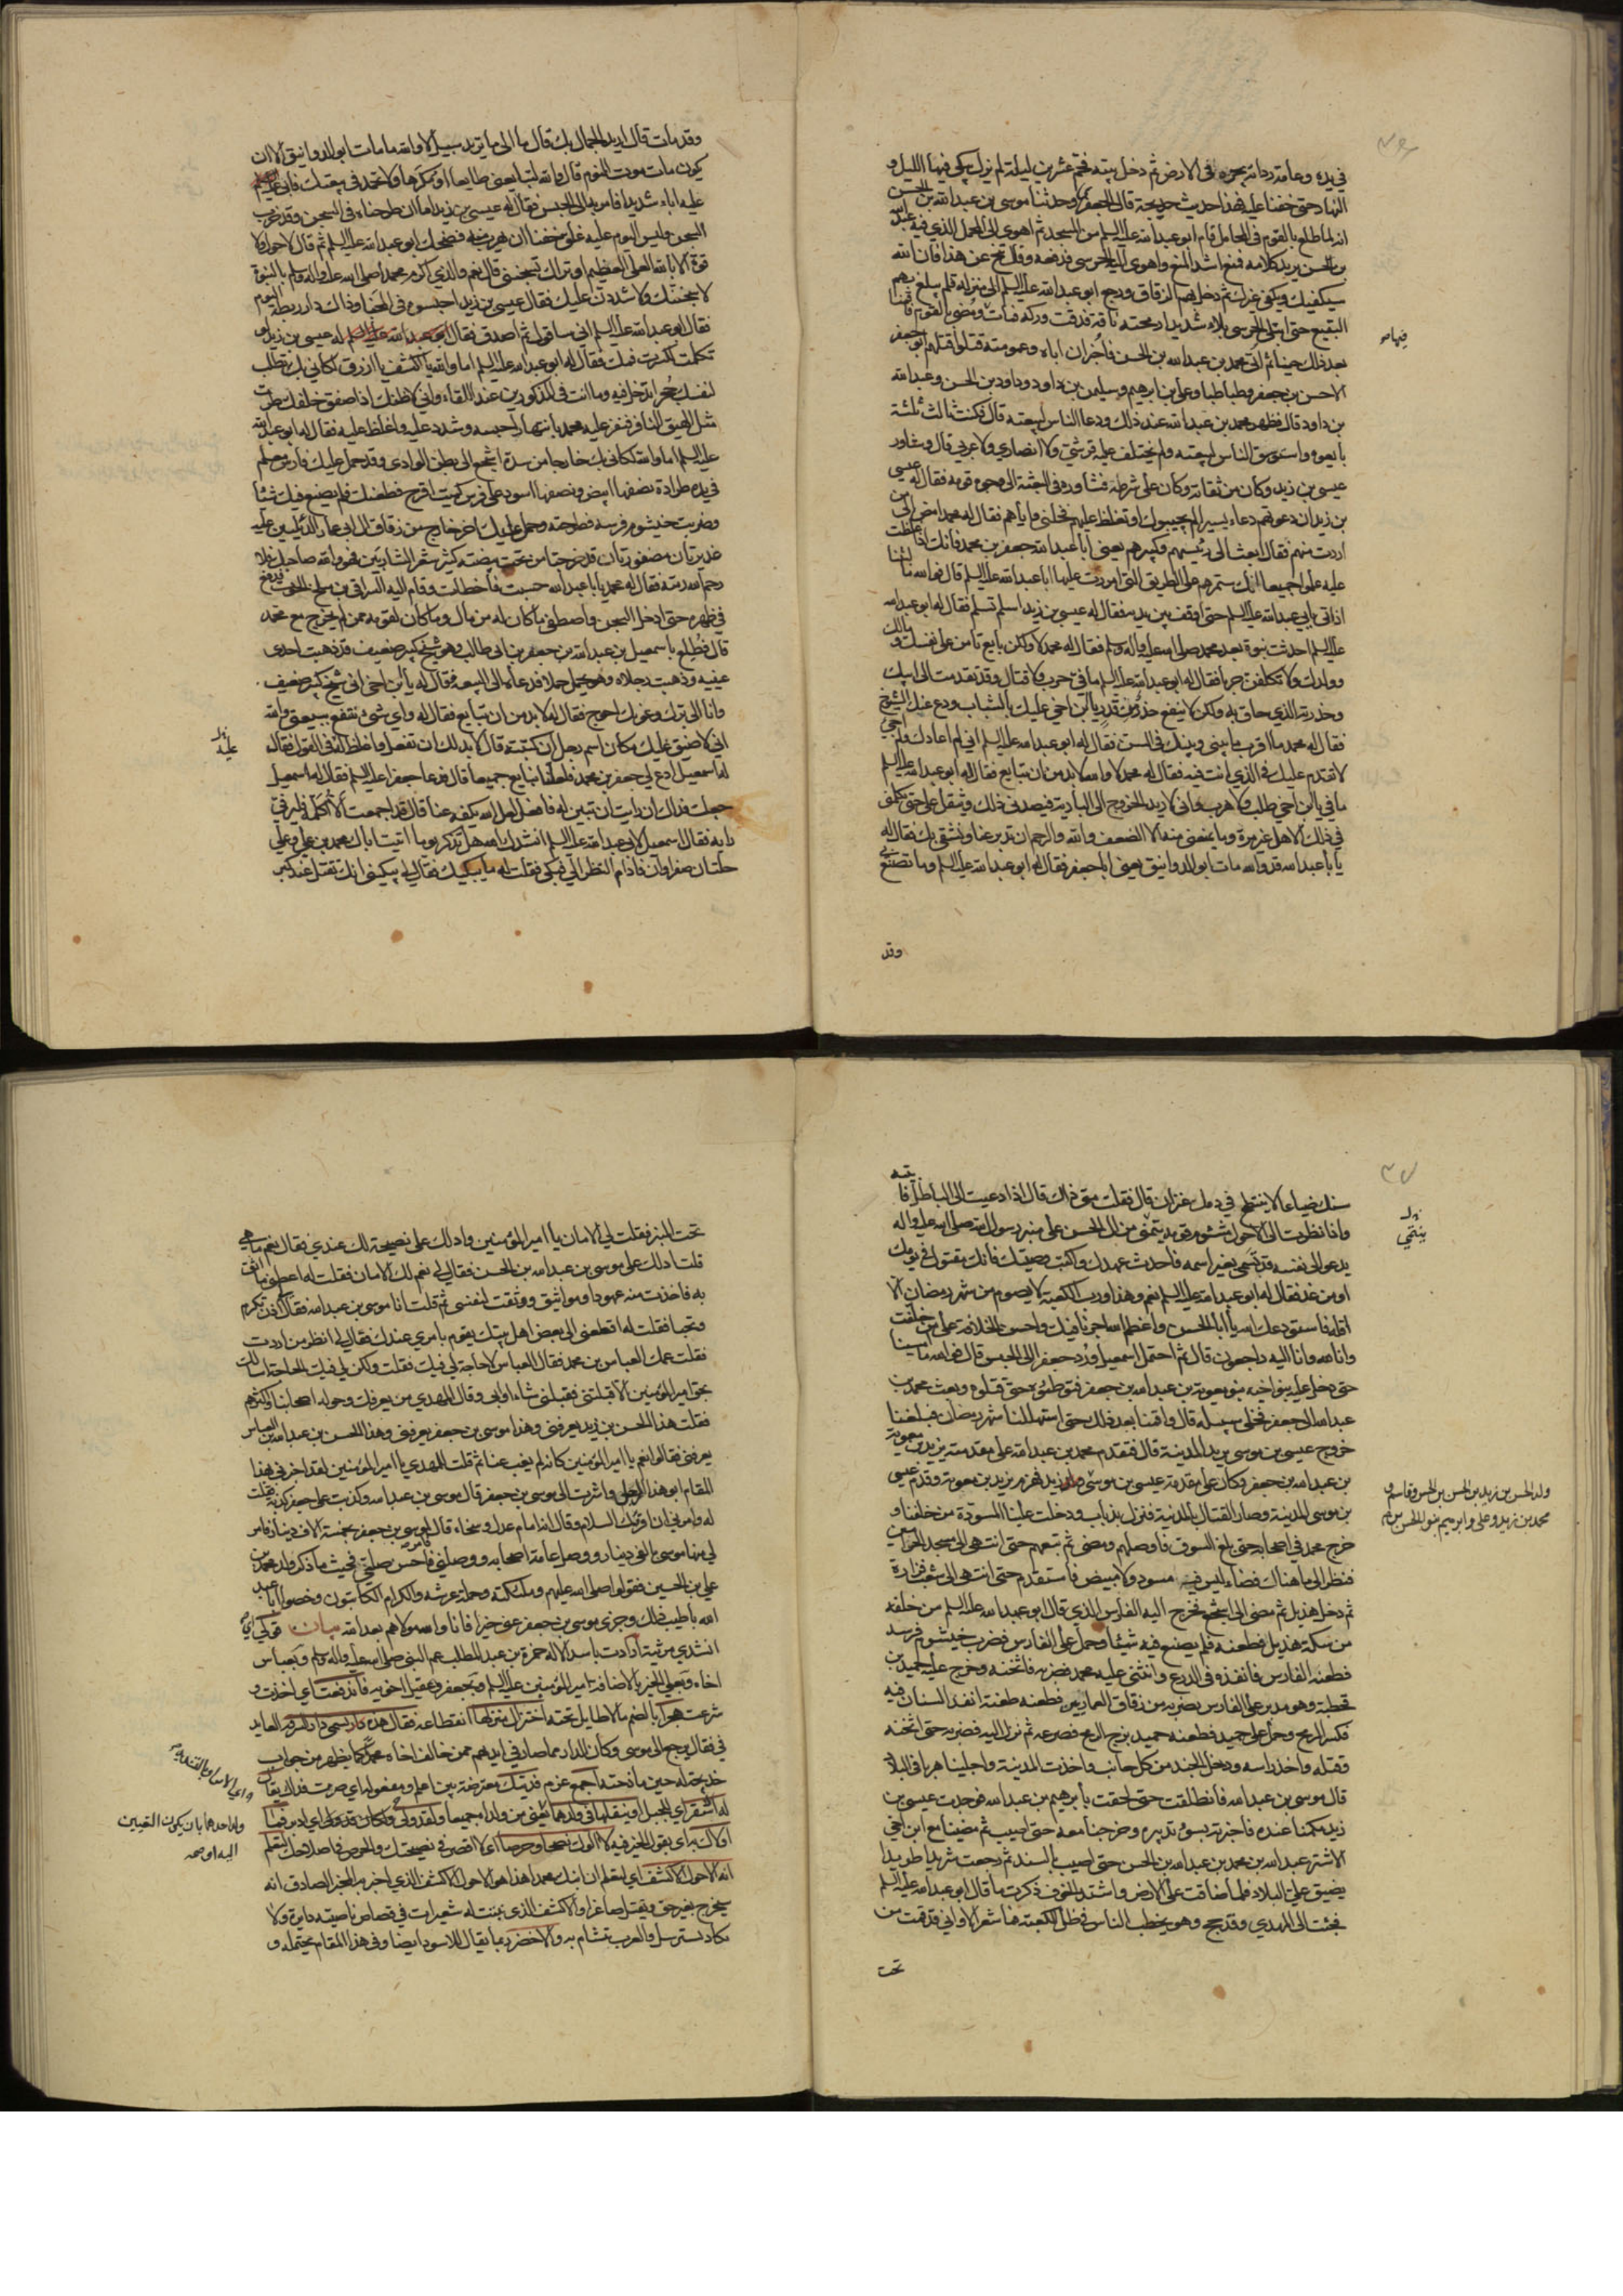 في يده وعامة ردائه يجره في الارض ثم دخل بيته فحم عشرين ليلة لم يزل يبكي فيها الليل و
النهار حتى خفنا عليه فهذا حديث خديجة قال الجعفري وحدثنا موسى بن عبد الله بن الحسن
انه لما طلع بالقوم في المحامل قام ابو عبد الله عليه السلم من المسجد ثم اهوى الى المحمل الذي فيه عبد الله
بن الحسن يريد كلامه فمنع اشد المنع واهوى اليه الحرسي فدفعه وقال تنح عن هذا فان الله
سيكفيك ويكفي غيرك ثم دخل بهم الزقاق ورجع ابو عبد الله عليه السلم الى منزله فلم يبلغ بهم
البقيع حتى ابتلي الحرسي بلاء شديدا رمحته ناقة فدقت وركه فمات ومضي بالقوم فاقمنا
بعد ذلك حينا ثم اتى محمد بن عبد الله بن الحسن فاخبر ان اباه وعمومته قتلوا قتلهم ابو جعفر
الا حسن بن جعفر وطباطبا وعلي بن ابرهيم وسليمن بن داود وداود بن الحسن وعبد الله
بن داود قال فظهر محمد بن عبد الله عند ذلك ودعا الناس لبيعته قال فكنت ثالث ثلثة
بايعوه واستوسق الناس لبيعته ولم يختلف عليه قرشي ولا انصاري ولا عربي قال وشاور
عيسى بن زيد وكان من ثقاته وكان على شرطه فشاوره في البعثة الى وجوه قومه فقال له عيسى
بن زيد ان دعوتهم دعاء يسيرا لم يجيبوك او تغلظ عليهم فخلني واياهم فقال له محمد امض الى من
اردت منهم فقال ابعث الى رئيسهم وكبيرهم يعني ابا عبد الله جعفر بن محمد فانك اذا غلظت
عليه علموا جميعا انك ستمرهم على الطريق التي امررت عليها ابا عبد الله عليه السلم قال فوالله ما لبثنا
اذ اتي بابي عبد الله عليه السلم حتى اوقف بين يديه فقال له عيسى بن زيد اسلم تسلم فقال له ابو عبد الله
عليه السلم احدثت نبوة بعد محمد صلى الله عليه واله وسلم فقال له محمد لا ولكن بايع تامن على نفسك ومالك
وولدك ولا تكلفن حربا فقال له ابو عبد الله عليه السلم ما في حرب ولا قتال وقد تقدمت الى ابيك
وحذرته الذي حاق به ولكن لا ينفع حذر من قدر يا ابن اخي عليك بالشباب ودع عنك الشيوخ
فقال له محمد ما اقرب ما بيني وبينك في السن فقال له ابو عبد الله عليه السلم اني لم اعازك ولم اجئ
لاتقدم عليك في الذي انت فيه فقال له محمد لا والله لابد من ان تبايع فقال له ابو عبد الله عليه السلم
ما في يا ابن اخي طلب ولا هرب واني لاريد الخروج الى البادية فيصدني ذلك ويثقل علي حتى يكلمني
في ذلك الاهل غير مرة وما يمنعني منه الا الضعف والله والرحم ان تدبر عنا ونشقى بك فقال له
يا ابا عبد الله قد والله مات ابو الدوانيق يعني ابا جعفر فقال له ابو عبد الله عليه السلم وما تصنع بي
وقد
وقد مات قال اريد الجمال بك قال ما الى ما تريد سبيل لا والله ما مات ابو الدوانيق الا ان
يكون مات موت النوم قال والله لتبايعني طايعا او مكرها ولا تحمد في بيعتك فابى عليه
عليه اباء شديدا فامر به الى الحبس فقال له عيسى بن زيد اما ان طرحناه في السجن وقد خرب
السجن وليس اليوم عليه غلق خفنا ان يهرب منه فضحك ابو عبد الله عليه السلم ثم قال لا حول ولا
قوة الا بالله العلي العظيم اوتراك تسجنني قال نعم والذي اكرم محمدا صلى الله عليه واله وسلم بالنبوة
لاسجننك ولاشددن عليك فقال عيسى بن زيد احبسوه في المخبا وذاك دار ريطة اليوم
فقال ابو عبد الله عليه السلم اني ساقول ثم اصدق فقال له عيسى بن زيد لو
تكلمت لكسرت فمك فقال له ابو عبد الله عليه السلم اما والله يا اكشف يا ازرق لكاني بك تطلب
لنفسك حجرا تدخل فيه وما انت في المذكورين عند اللقاء واني لاظنك اذا صفق خلفك طرت
مثل الهيق النافر فنفر عليه محمد بانتهار احبسه وشدد عليه واغلظ عليه فقال له ابو عبد الله
عليه السلم اما والله لكاني بك خارجا من سدة اشجع الى بطن الوادي وقد حمل عليك فارس معلم
في يده طرادة نصفها ابيض ونصفها اسود على فرس كميت اقرح فطعنك فلم يصنع فيك شيئا
وضربت خيشوم فرسه فطرحته وحمل عليك اخر خارج من زقاق ال ابي عمار الدئليين عليه
غديرتان مضفورتان قد خرجتا من تحت بيضته كثير شعر الشاربين فهو والله صاحبك فلا
رحم الله رمته فقال له محمد يا ابا عبد الله حسبت فاخطات وقام اليه السراقي بن سلخ الحوت فدفع
في ظهره حتى ادخل السجن واصطفي ما كان له من مال وما كان لقومه ممن لم يخرج مع محمد
قال فطلع باسمعيل بن عبد الله بن جعفر بن ابي طالب وهو شيخ كبير ضعيف قد ذهبت احدى
عينيه وذهبت رجلاه وهو يحمل حملا فدعاه الى البيعة فقال له يا ابن اخي اني شيخ كبير ضعيف
وانا الى برك وعونك احوج فقال له لابد من ان تبايع فقال له واي شئ تنتفع ببيعتي والله
اني لاضيق عليك مكان اسم رجل ان كتبته قال لابد لك ان تفعل واغلظ له في القول فقال
له اسمعيل ادع لي جعفر بن محمد فلعلنا نبايع جميعا قال فدعا جعفرا عليه السلم فقال له اسمعيل
جعلت فداك ان رايت ان تبين له فافعل لعل الله يكفه عنا قال قد اجمعت الا اكلمه فلير في
رايه فقال اسمعيل لابي عبد الله عليه السلم انشدك الله هل تذكر يوما اتيت اباك محمد بن علي وعلي
حلتان صفراوان فادام النظر الي فبكى فقلت له ما يبكيك فقال لي يبكيني انك تقتل عند كبر
سنك ضياعا لا ينتطح في دمك عنزان قال فقلت متى ذاك قال اذا دعيت الى الباطل فابيته
واذا نظرت الى الاحول مشئوم قومه يتمنى من ال الحسن على منبر رسول الله صلى الله عليه واله
يدعو الى نفسه قد تسمى بغير اسمه فاحدث عهدك واكتب وصيتك فانك مقتول في يومك
او من غد فقال له ابو عبد الله عليه السلم نعم وهذا ورب الكعبة لا يصوم من شهر رمضان الا
اقله فاستودعك الله يا ابا الحسن واعظم الله اجرنا فيك واحسن الخلافة على من خلفت
وانا لله وانا اليه راجعون قال ثم احتمل اسمعيل ورد جعفر الى الحبس قال فوالله ما امسينا
حتى دخل عليه بنو اخيه بنو معوية بن عبد الله بن جعفر فتوطئوه حتى قتلوه وبعث محمد بن
عبد الله الى جعفر فخلى سبيله قال واقمنا بعد ذلك حتى استهللنا شهر رمضان فبلغنا
خروج عيسى بن موسى يريد المدينة قال فتقدم محمد بن عبد الله على مقدمته يزيد بن معوية
بن عبد الله بن جعفر وكان على مقدمة عيسى بن موسى ولد زيد فهزم يزيد بن معوية وقدم عيسى
بن موسى المدينة وصار القتال بالمدينة فنزل بذباب ودخلت علينا المسودة من خلفنا و
خرج محمد في اصحابه حتى بلغ السوق فاوصلهم ومضى ثم تبعهم حتى انتهى الى مسجد الخوامين
فنظر الى ما هناك فضاء ليس فيه مسود ولا مبيض فاستقدم حتى انتهى الى شعب فزارة
ثم دخل هذيل ثم مضى الى اشجع فخرج اليه الفارس الذي قال ابو عبد الله عليه السلم من خلفه
من سكة هذيل فطعنه فلم يصنع فيه شيئا وحمل على الفارس فضرب خيشوم فرسه
فطعنه الفارس فانفذه في الدرع وانثنى عليه محمد فضربه فاثخنه وخرج عليه حميد بن
قحطبة وهو مدبر على الفارس يضربه من زقاق العماريين فطعنه طعنة انفذ السنان فيه
فكسر الرمح وحمل على حميد فطعنه حميد بزج الرمح فصرعه ثم نزل اليه فضربه حتى اثخنه
وقتله واخذ راسه ودخل الجند من كل جانب واخذت المدينة واجلينا هربا في البلاد
قال موسى بن عبد الله فانطلقت حتى لحقت بابرهيم بن عبد الله فوجدت عيسى بن
زيد مكمنا عنده فاخبرته بسوء تدبيره وخرجنا معه حتى اصيب ثم مضينا مع ابن اخي
الاشتر عبد الله بن محمد بن عبد الله بن الحسن حتى اصيب بالسند ثم رجعت شريدا طريدا
يضيق علي البلاد فلما ضاقت علي الارض واشتد الخوف ذكرت ما قال ابو عبد الله عليه السلم
فجئت الى المهدي وقد حج وهو يخطب الناس في ظل الكعبة فما شعر الا واني قد قمت من
تحت
ولد الحسن بن زيد بن الحسن بن الحسن وقاسم و
محمد بن زيد وعلي وابرهيم بنو الحسن بن زيد
تحت المنبر فقلت لي الامان يا امير المؤمنين وادلك على نصيحة لك عندي فقال نعم ما هي
قلت ادلك على موسى بن عبد الله بن الحسن فقال لي نعم لك الامان فقلت له اعطني ما اثق
به فاخذت منه عهودا ومواثيق ووثقت لنفسي ثم قلت انا موسى بن عبد الله فقال لي اذن تكرم
وتحبا فقلت له اقطعني الى بعض اهل بيتك يقوم بامري عندك فقال لي انظر من اردت
فقلت عمك العباس بن محمد فقال العباس لا حاجة لي فيك فقلت ولكن لي فيك الحاجة اسالك
بحق امير المؤمنين الا قبلتني فقبلني شاء او ابى وقال المهدي من يعرفك وحوله اصحابنا او اكثرهم
فقلت هذا الحسن بن زيد يعرفني وهذا موسى بن جعفر يعرفني وهذا الحسن بن عبد الله بن العباس
يعرفني فقالوا نعم يا امير المؤمنين كانه لم يغب عنا ثم قلت للمهدي يا امير المؤمنين لقد اخبرني بهذا
المقام ابو هذا الرجل واشرت الى موسى بن جعفر قال موسى بن عبد الله وكذبت على جعفر كذبة فقلت
له وامرني ان اقرئك السلام وقال انه امام عدل وسخاء قال فامر لموسى بن جعفر بخمسة الاف دينار فامر
لي منها موسى بالفي دينار ووصل عامة اصحابه ووصلني فاحسن صلتي فحيث ما ذكر ولد محمد بن
علي بن الحسين فقولوا صلى الله عليهم وملئكته وحملة عرشه والكرام الكاتبون وخصوا ابا عبد
الله باطيب ذلك وجزى موسى بن جعفر عني خيرا فانا والله مولاهم بعد الله بيان قولي اي
انشدي مرثية ارادت باسد الاله حمزة بن عبد المطلب عم النبي صلى الله عليه واله وسلم وبعباس
اخاه وبعلي الخير بالاضافة امير المؤمنين عليه السلم وبجعفر وعقيل اخويه فاندفعت اي اخذت و
شرعت هجرا بالضم ما لا طايل تحته اختزال منزلها انقطاعه فقال هذه دار تسمى دار السرقة العايد
في فقال يرجع الى موسى وكان الدار مما صار في ايديهم ممن خالف اخاه محمدا كما يظهر من جواب
خديجة له حين مازحته اجمع عزم فديتك معترضة بين اعلم ومفعوله اي صرت فداك يقال
انه الاحول الاكشف اي ليعلم ان ابنك محمدا هذا هو الاحول الاكشف الذي اخبر به المخبر الصادق انه
سيخرج بغير حق ويقتل صاغرا والاكشف الذي نبتت له شعيرات في قصاص ناصيته دايرة ولا
تكاد تسترسل والعرب تتشام به والاخضر ربما يقال للاسود ايضا وفي هذا المقام يحتمله و